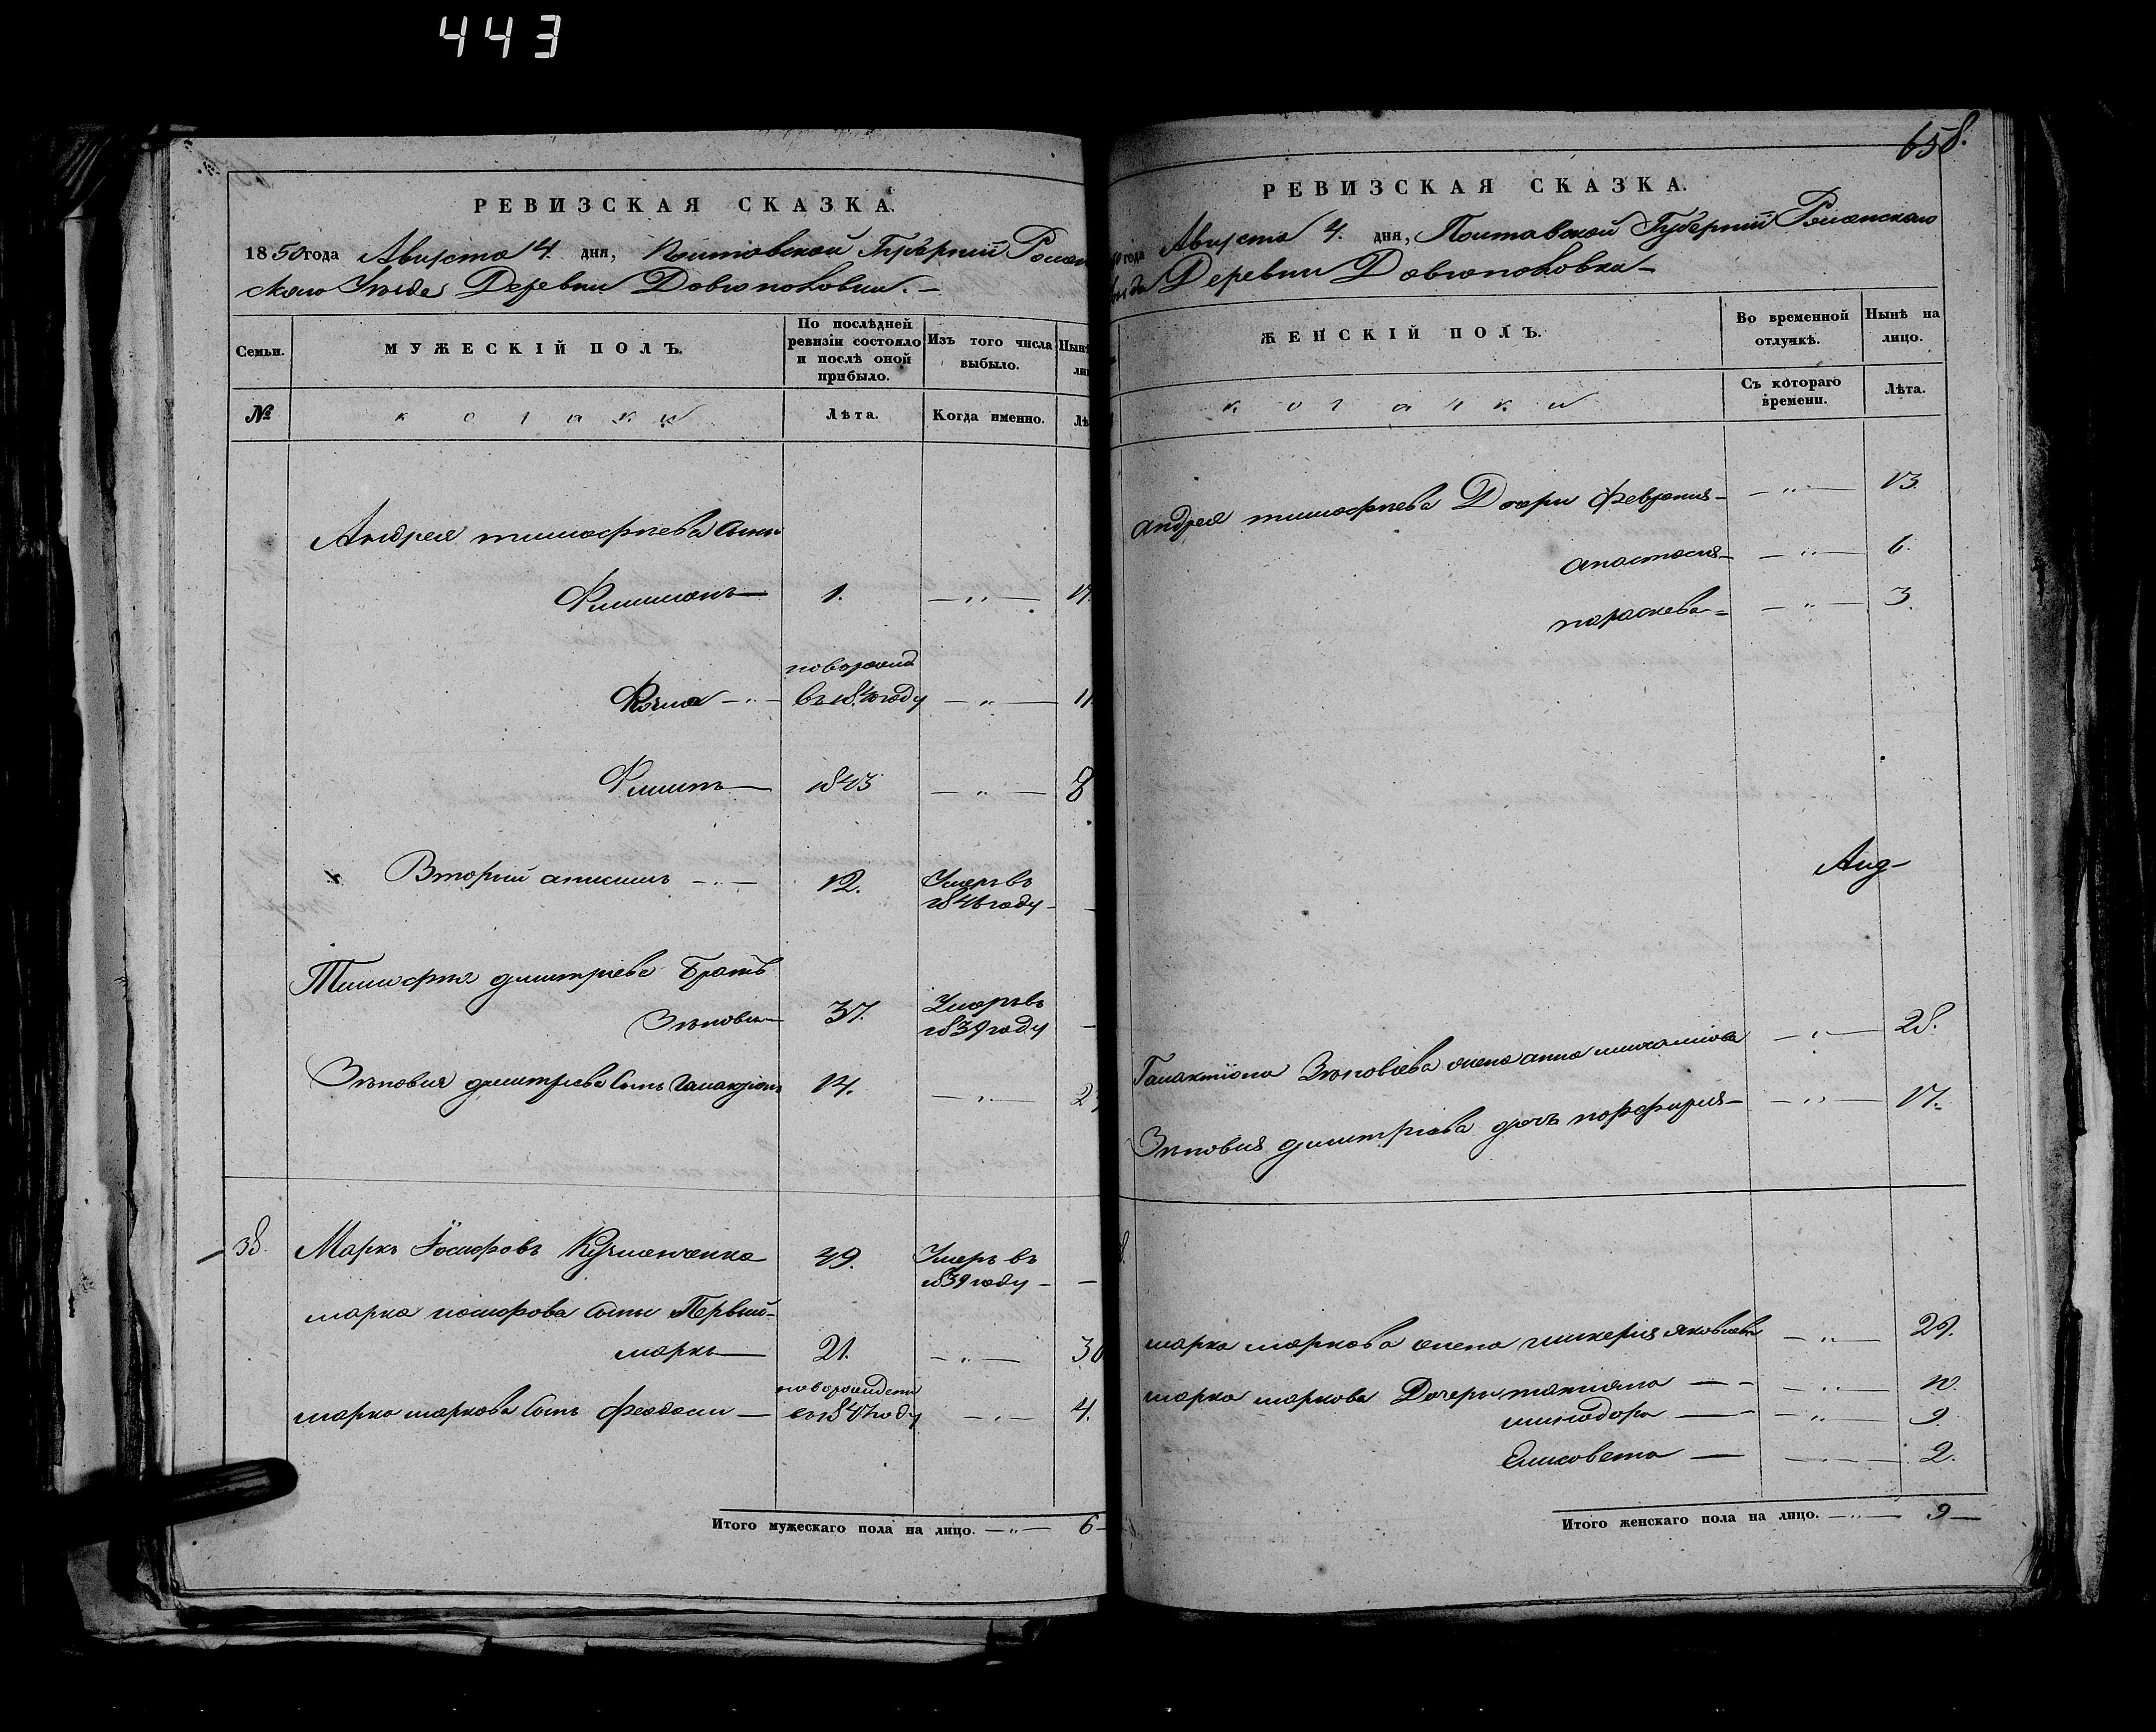 443
РЕВИЗСКАЯ СКАЗКА.
1850 года Августа 4. дня, Полтавской Губернии Ромен
скаго Уѣзда Деревни Довгополовки. —
Семьи.
МУЖЕСКІЙ ПОЛЪ.
По послѣдней ревизіи состояло и послѣ оной прибыло.
Изъ того числа выбыло.
№
козаки
Лѣта.
Когда именно.
Андрея тимофѣева сыны
Филимонъ — 1. — „ — 17.
новорожд
Козма — „ — въ 1840 году — „ — 11.
Филипъ — 1843 — „ — 8
Вторый анисимъ — „ — 12. Умеръ въ
1846 году —
Тимофѣя димитріева Братъ
Зѣновій — 37. Умеръ въ
1839 году —
Зѣновія димитріева Сынъ Галактіонъ 14. — „ —
38. Маркъ Іосифовъ Кузменченко 49. Умеръ въ
1839 году —
марка іосифова сыны Первый —
маркъ — 21. — „ —
новорожденъ
марка маркова Сынъ Феодосій — въ 1847 году — „ — 4.
Итого мужескаго пола на лицо. — „ — 6 —
658.
РЕВИЗСКАЯ СКАЗКА.
года Августа 4. дня, Полтавской Губерніи Роменскаго
Деревни Довгополовки —
ЖЕНСКІЙ ПОЛЪ.
Во временной отлучкѣ.
Нынѣ на лицо.
козачки
Съ котораго времени.
Лѣта.
андрея тимофѣева Дочери Февронія — — „ — 13.
анастасія — — „ — 6.
параскева — — „ — 3.
Галактіона Зѣновіева жена анна михайлова — „ — 28.
Зѣновія димитріева дочь порфирія — — „ — 17.
марка маркова жена гликерія яковлева — „ — 29.
марка маркова Дочери татіана — — „ — 12.
минодора — — „ — 9.
Елисавета — — „ — 2.
Итого женскаго пола на лицо. — „ — 9 —